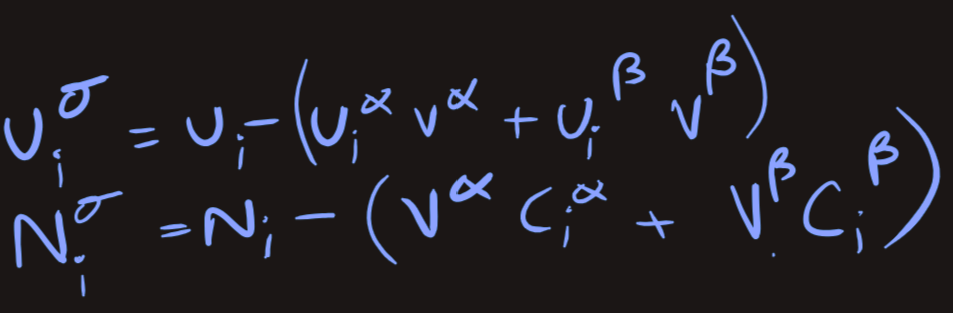 U_i^σ = U_i - (U_i^α V^α + U_i^β V^β)
N_i^σ = N_i - (V^α C_i^α + V^β C_i^β)